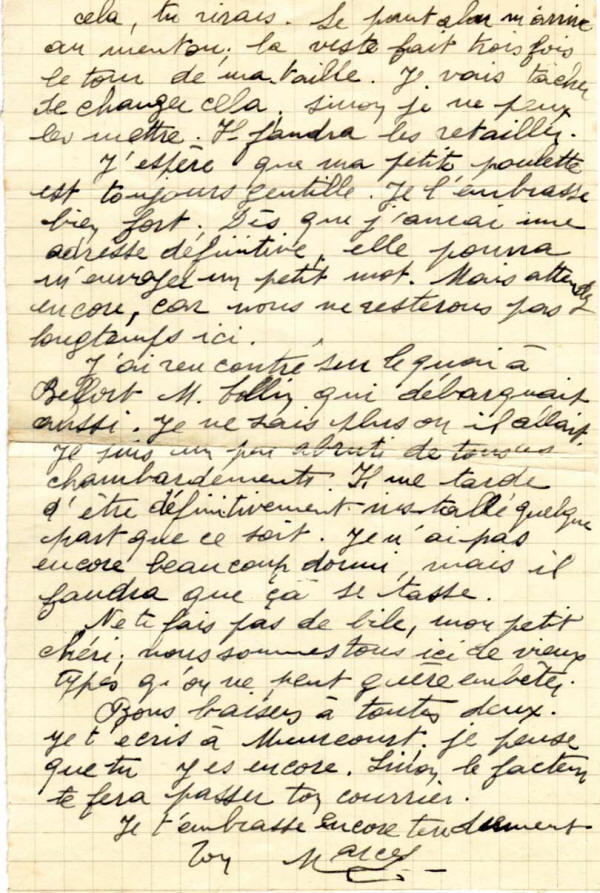 cela, tu rirais. Le pantalon m'arrive
au menton; la veste fait trois fois
le tour de ma taille. Je vais tâcher
de changer cela, sinon je ne peux
les mettre. Il faudra les retailler.
J'espère que ma petite poulette
est toujours gentille. Je l'embrasse
bien fort. Dès que j'aurai une
adresse définitive, elle pourra
m'envoyer un petit mot. Mais attendez
encore, car nous ne resterons pas
longtemps ici.
J'ai rencontré sur le quai à
Belfort M. qui débarquait
aussi. Je ne sais plus où il allait.
Je suis un peu abruti de tous ces
chambardements. Il me tarde
d'être définitivement installé quelque
part que ce soit. Je n'ai pas
encore beaucoup dormi, mais il
faudra que çà se tasse.
Ne te fais pas de bile, mon petit
chéri; nous sommes tous ici de vieux
types qu'on ne peut guère embêter.
Bons baisers à toutes deux.
Je t'écris à je pense
que tu y es encore. Sinon, le facteur
te fera passer ton courrier.
Je t'embrasse encore tendrement
Ton Marcel